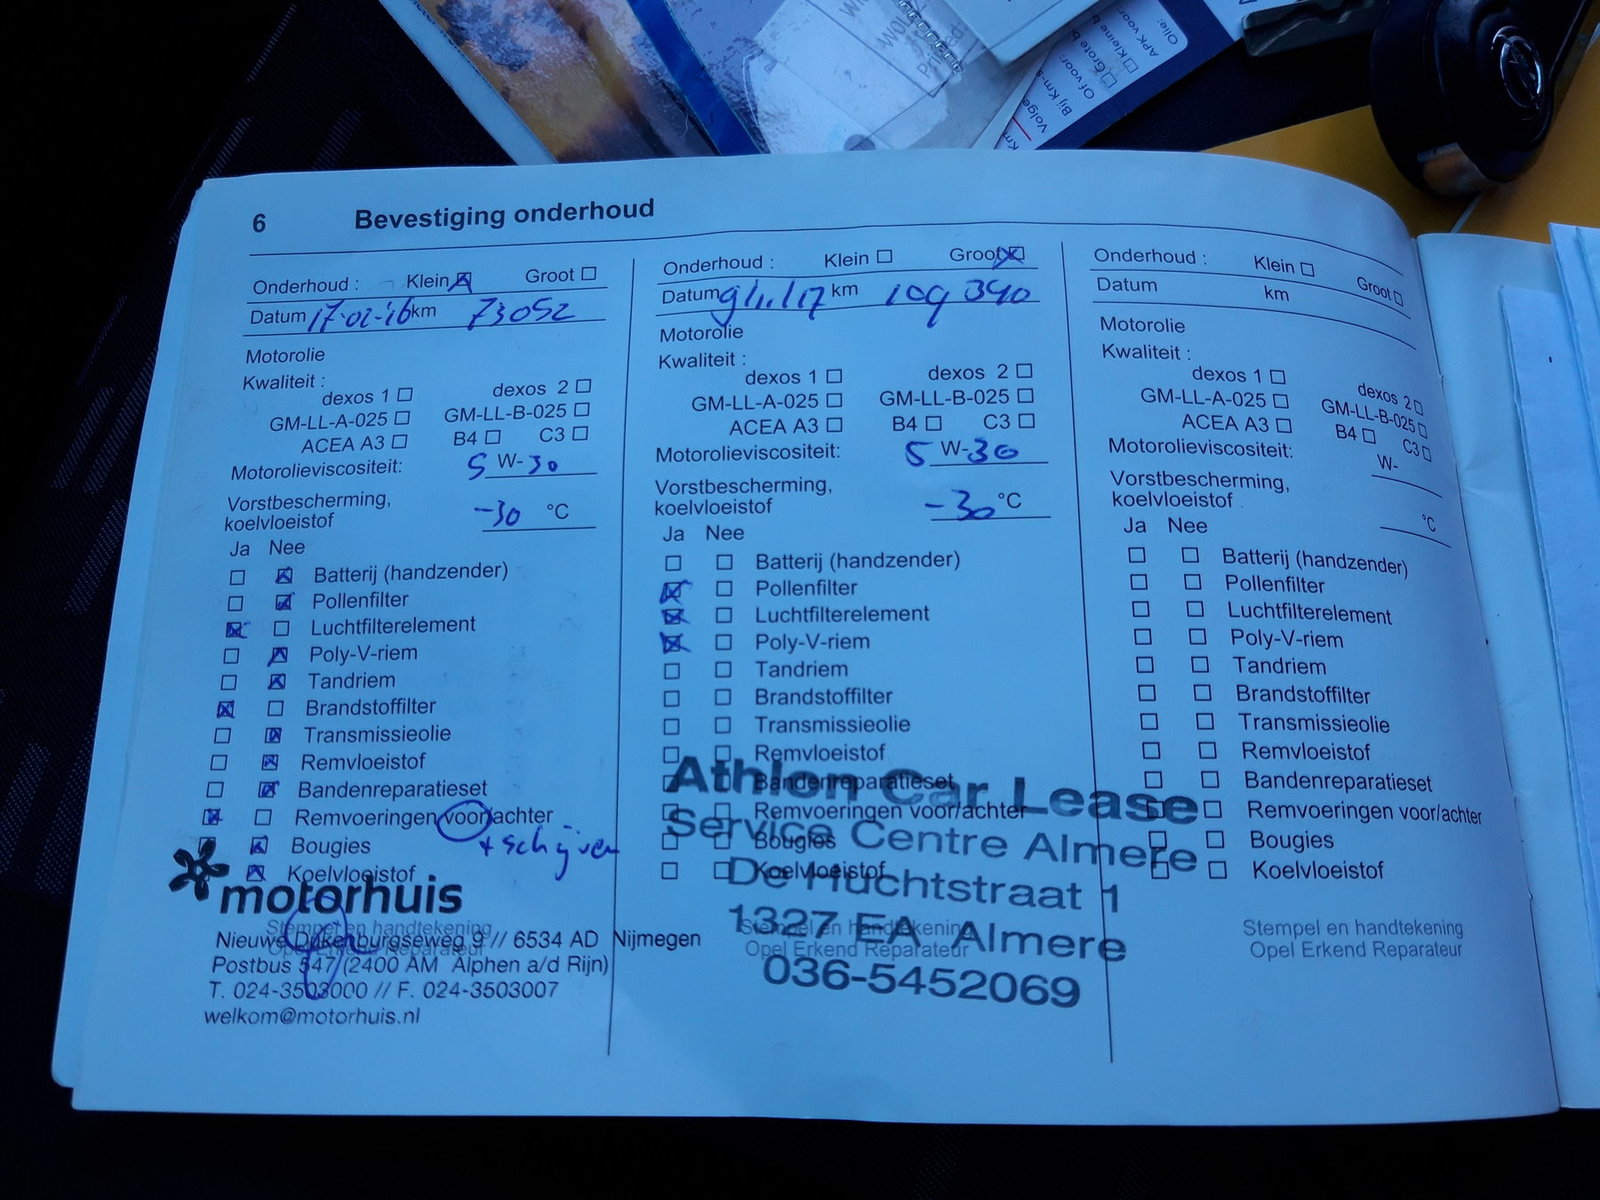 6 Bevestiging onderhoud
Onderhoud : Klein Groot
Datum 17-02-16 km 73052
Motorolie
Kwaliteit :
dexos 1 dexos 2
GM-LL-A-025 GM-LL-B-025
ACEA A3 B4 C3
Motorolieviscositeit: 5 W-30
Vorstbescherming,
koelvloeistof -30 °C
Ja Nee
Batterij (handzender)
Pollenfilter
Luchtfilterelement
Poly-V-riem
Tandriem
Brandstoffilter
Transmissieolie
Remvloeistof
Bandenreparatieset
Remvoeringen voor/achter
+ schijven
Bougies
Koelvloeistof
motorhuis
Stempel en handtekening
Opel Erkend Reparateur
Nieuwe Dukenburgseweg 9 // 6534 AD Nijmegen
Postbus 547 (2400 AM Alphen a/d Rijn)
T. 024-3503000 // F. 024-3503007
welkom@motorhuis.nl
Onderhoud : Klein Groot
Datum 9/11/17 km 109 390
Motorolie
Kwaliteit :
dexos 1 dexos 2
GM-LL-A-025 GM-LL-B-025
ACEA A3 B4 C3
Motorolieviscositeit: 5 W-30
Vorstbescherming,
koelvloeistof -30 °C
Ja Nee
Batterij (handzender)
Pollenfilter
Luchtfilterelement
Poly-V-riem
Tandriem
Brandstoffilter
Transmissieolie
Remvloeistof
Bandenreparatieset
Remvoeringen voor/achter
Bougies
Koelvloeistof
Stempel en handtekening
Opel Erkend Reparateur
Athlon Car Lease
Service Centre Almere
De Huchtstraat 1
1327 EA Almere
036-5452069
Onderhoud : Klein Groot
Datum km
Motorolie
Kwaliteit :
dexos 1 dexos 2
GM-LL-A-025 GM-LL-B-025
ACEA A3 B4 C3
Motorolieviscositeit: W-
Vorstbescherming,
koelvloeistof °C
Ja Nee
Batterij (handzender)
Pollenfilter
Luchtfilterelement
Poly-V-riem
Tandriem
Brandstoffilter
Transmissieolie
Remvloeistof
Bandenreparatieset
Remvoeringen voor/achter
Bougies
Koelvloeistof
Stempel en handtekening
Opel Erkend Reparateur
Olie:
APK voor
Kleine b
Grote b
Of voor:
Bij Km-s
Volge
Km